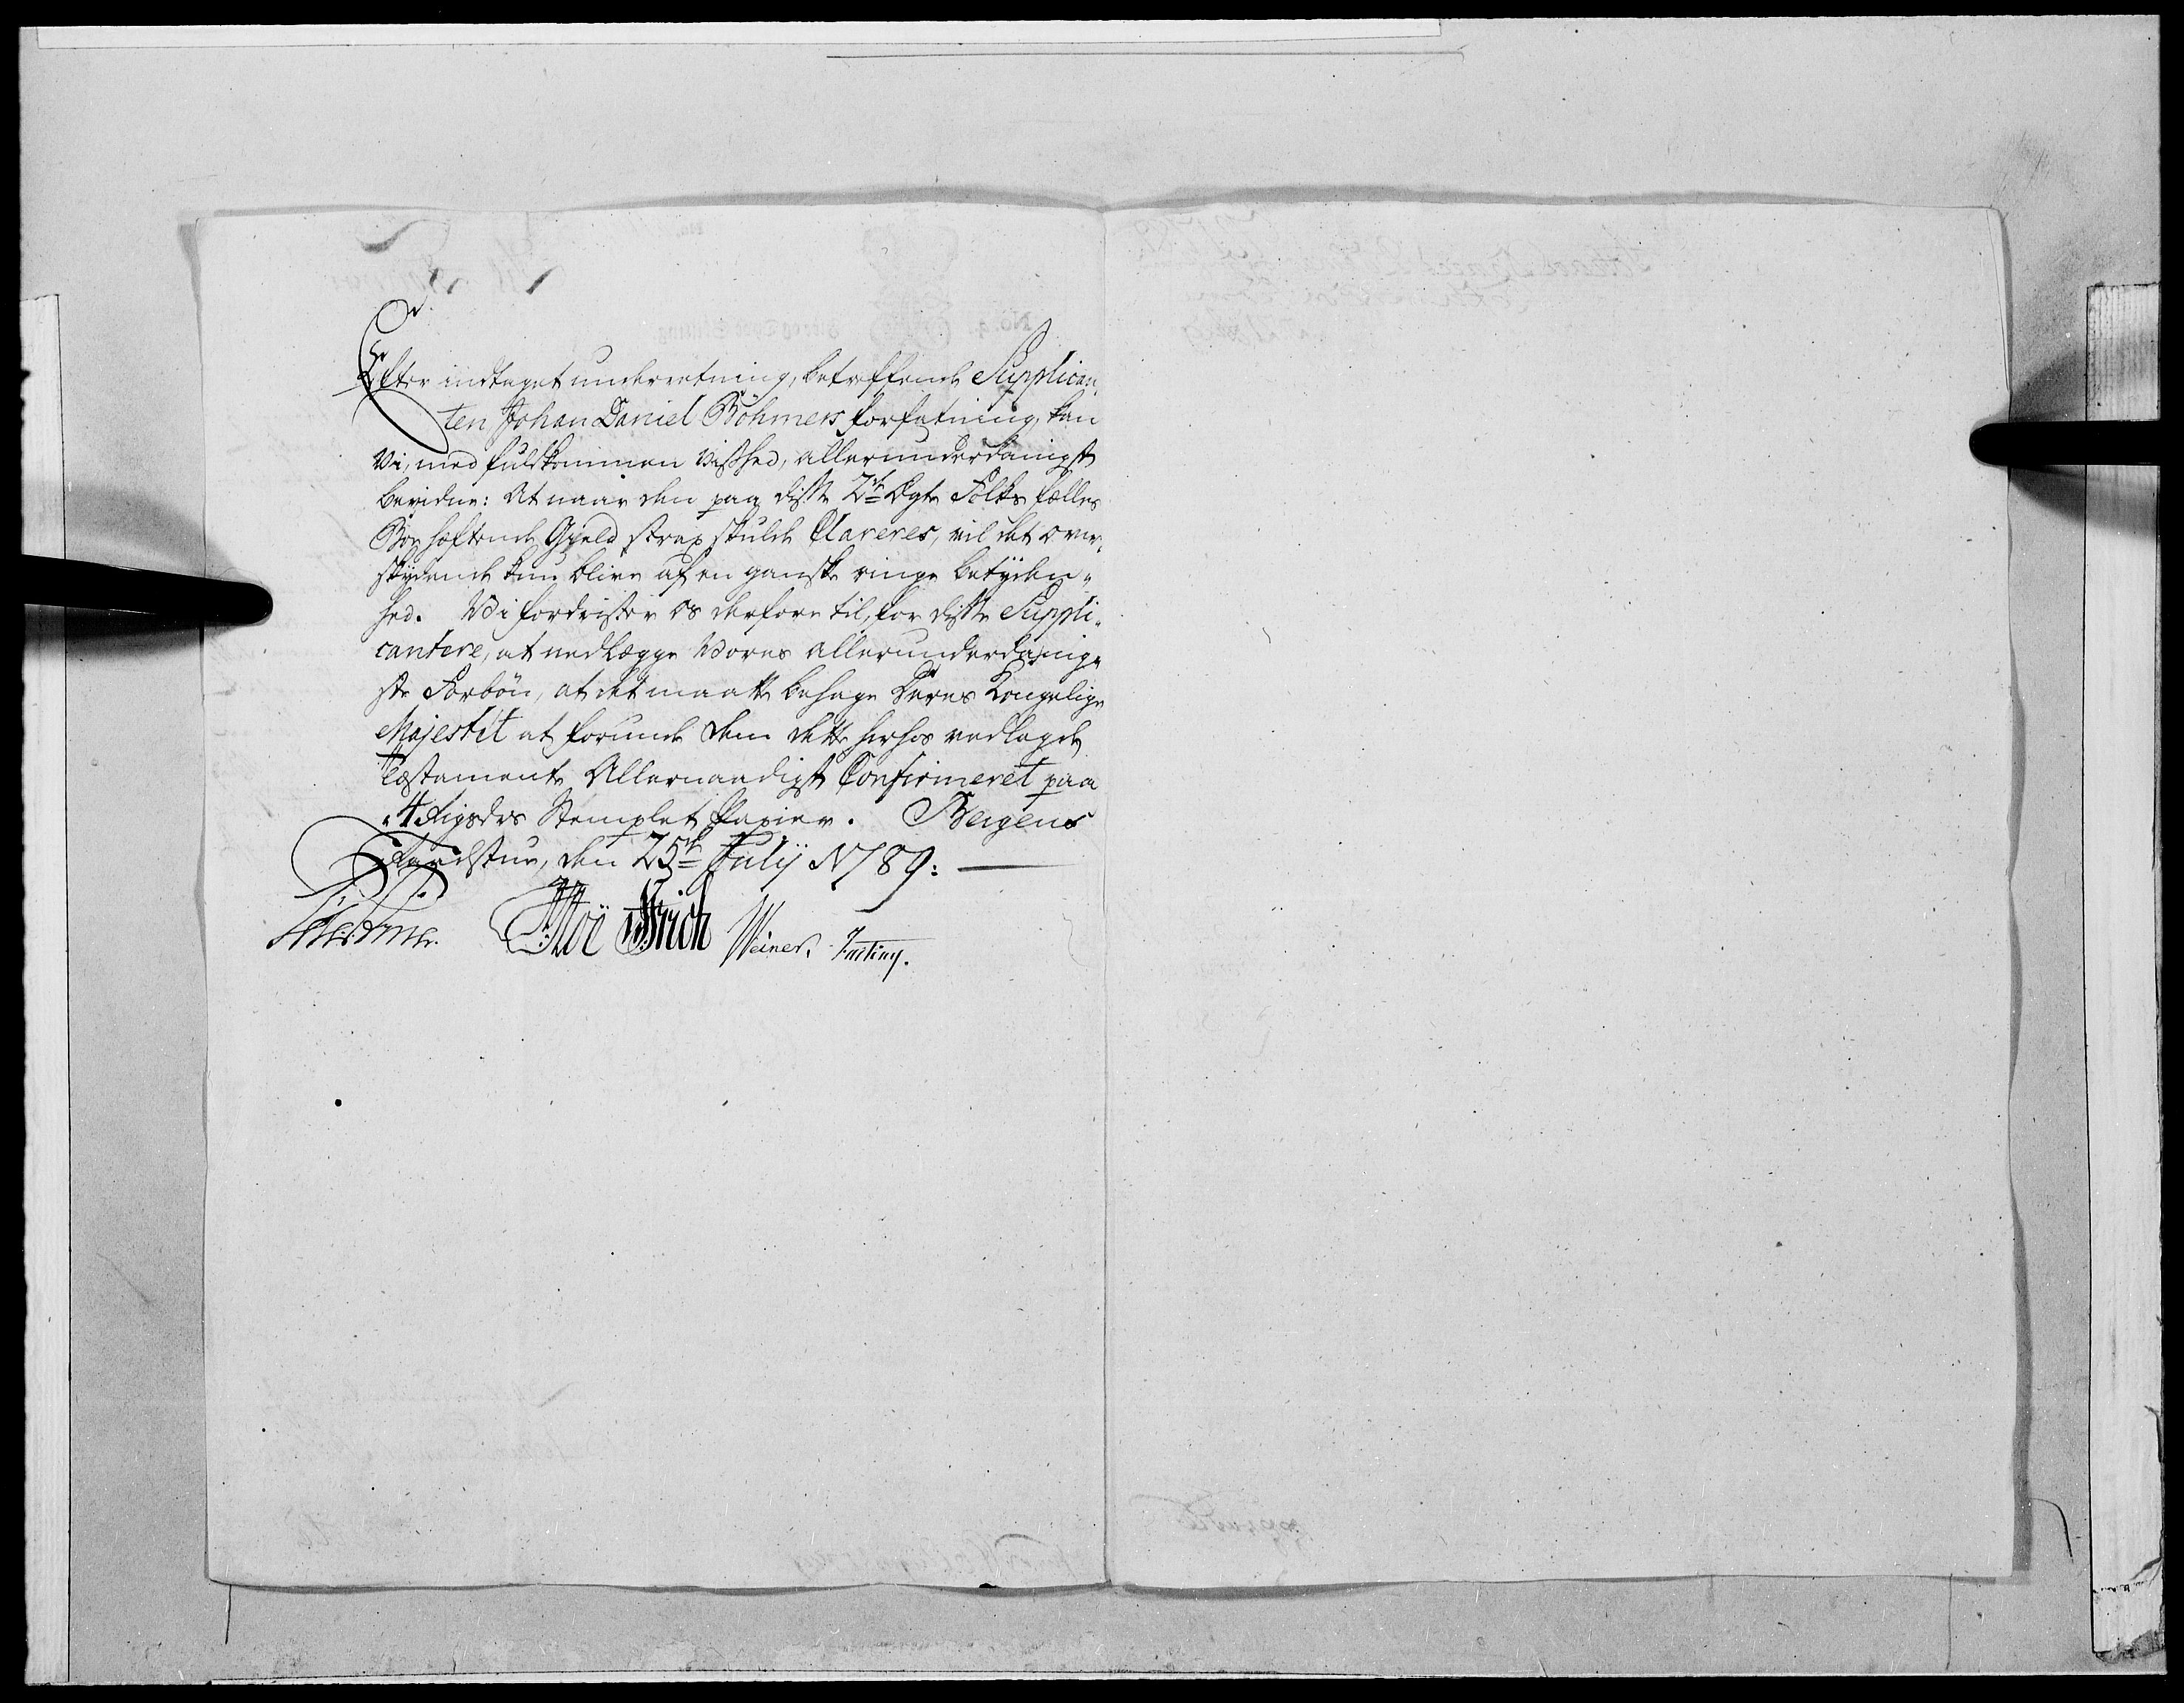 Efter indtaget underretning, betreffende Supplican,,
ten Johan Daniel Böhmers forfatning, kan
Vi, med fuldkommen Vished, allerunderdanigst
bevidne: At naar den paa disse 2de Egte Folks fælles
Boe heftende Gjeld strax skulde Clareres, vil det over,,
skydende kun blive af en ganske ringe betyden,,
hed. Vi fordrister os derfore til, for disse Suppli,,
cantere, at nedlægge Vores allerunderdanig,,
ste Forbön, at det maatte behage Deres Kongelige
Majestet at forunde dem dette herhos vedlagde
Testamente Allernaadigst Confirmeret paa
4 Rigsdrs Stemplet Papier. Bergens
Raadstue, den 25de Julij 1789:
Hoë Frich Weiner. Fasting.